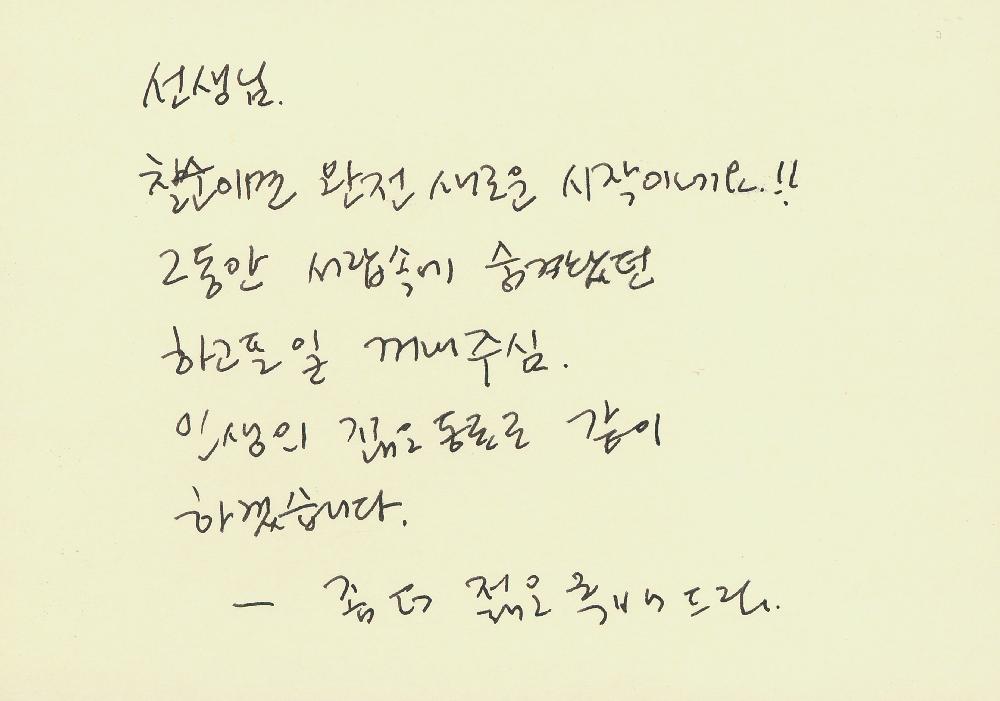 선생님.
칠순이면 완전 새로운 시작이네요.!!
그동안 서랍속에 숨겨놨던
하고픈 일 꺼내주심.
인생의 젊은 동료로 같이
하겠습니다.
— 좀 더 젊은 후배 드림.